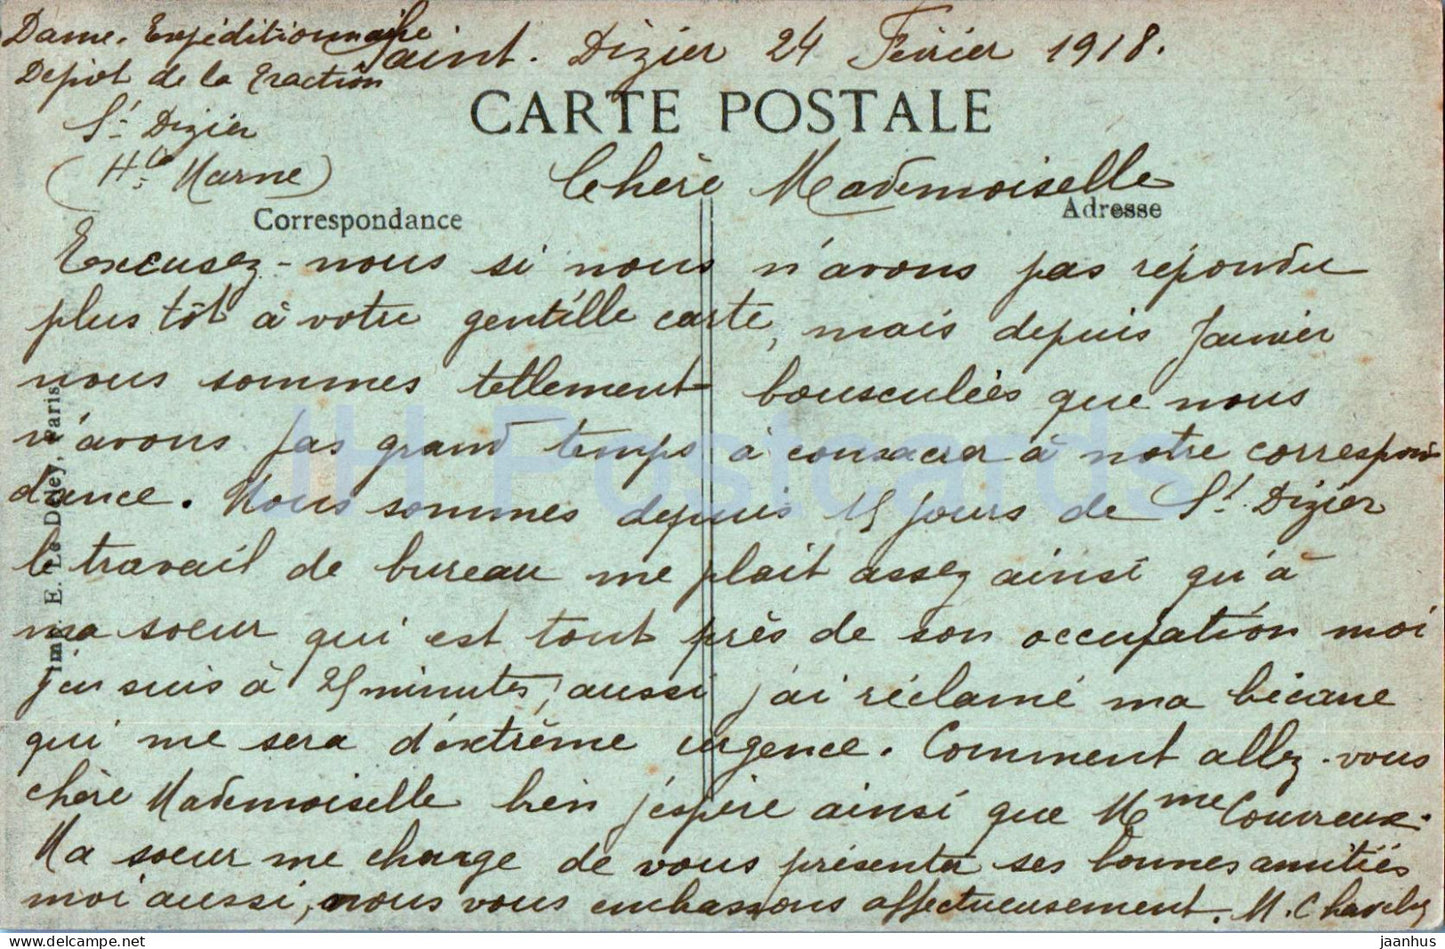 Dame. Expéditionnaire
Dépôt de la Traction
St Dizier
(Hte Marne)
Saint. Dizier 24 Février 1918.
CARTE POSTALE
Chère Mademoiselle
Correspondance
Adresse
Excusez-nous si nous n'avons pas répondu
plus tôt à votre gentille carte, mais depuis Janvier
nous sommes tellement bousculées que nous
n'avons pas grand temps à consacrer à notre correspon-
dance. Nous sommes depuis 15 jours de St Dizier
le travail de bureau me plait assez ainsi qu'à
ma soeur qui est tout près de son occupation moi
j'en suis à 25 minutes, aussi j'ai réclamé ma bécane
qui me sera d'extrême urgence. Comment allez-vous
chère Mademoiselle bien j'espère ainsi que Mme Couvreux.
Ma soeur me charge de vous présenter ses bonnes amitiés
moi aussi, nous vous embassons affectueusement. M.
Imp. E. Le Deley, Paris
IH Postcards
IH Postcards
jaanhus